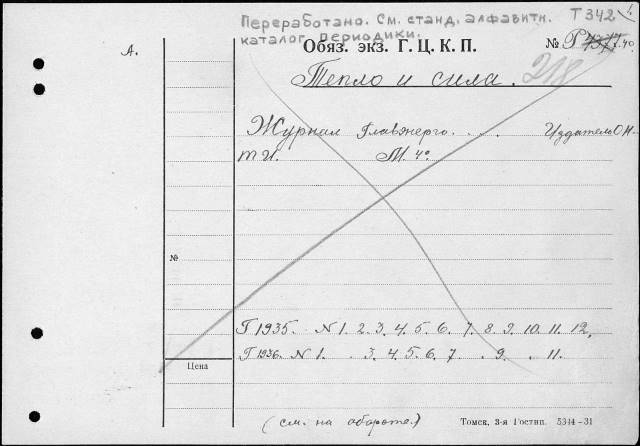 Переработано. См. станд. алфавитн. Т342 1.
каталог периодики.
А. Обяз. экз. Г. Ц. К. П. № Р
Тепло и сила. 218
Журнал Главэнерго . . . . Издател. ОН-
ТИ. М. 4°.
№
Г 1935. N 1. 2. 3. 4. 5. 6. 7. 8. 9. 10. 11. 12.
Г 1936. N 1. . 3. 4. 5. 6. 7 . 9. . 11.
Цена
(см. на обороте.) Томск, 3-я Гостип. 5344-31